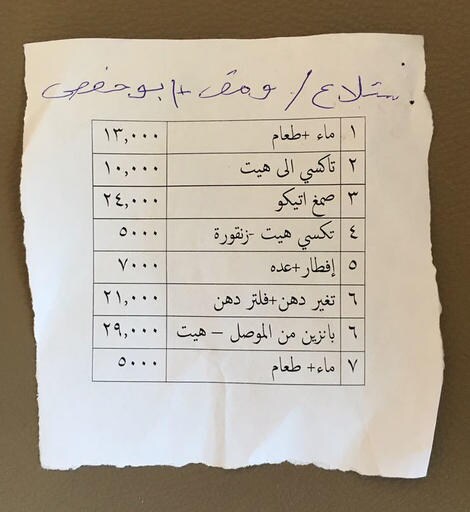 ستلاع / ومق + ابو حفص
١ ماء +طعام ١٣,٠٠٠
٢ تاكسي الى هيت ١٠,٠٠٠
٣ صمغ اتيكو ٢٤,٠٠٠
٤ تكسي هيت -زنقورة ٥٠٠٠
٥ إفطار+عده ٧٠٠٠
٦ تغير دهن+فلتر دهن ٢١,٠٠٠
٦ بانزين من الموصل – هيت ٢٩,٠٠٠
٧ ماء+ طعام ٥٠٠٠